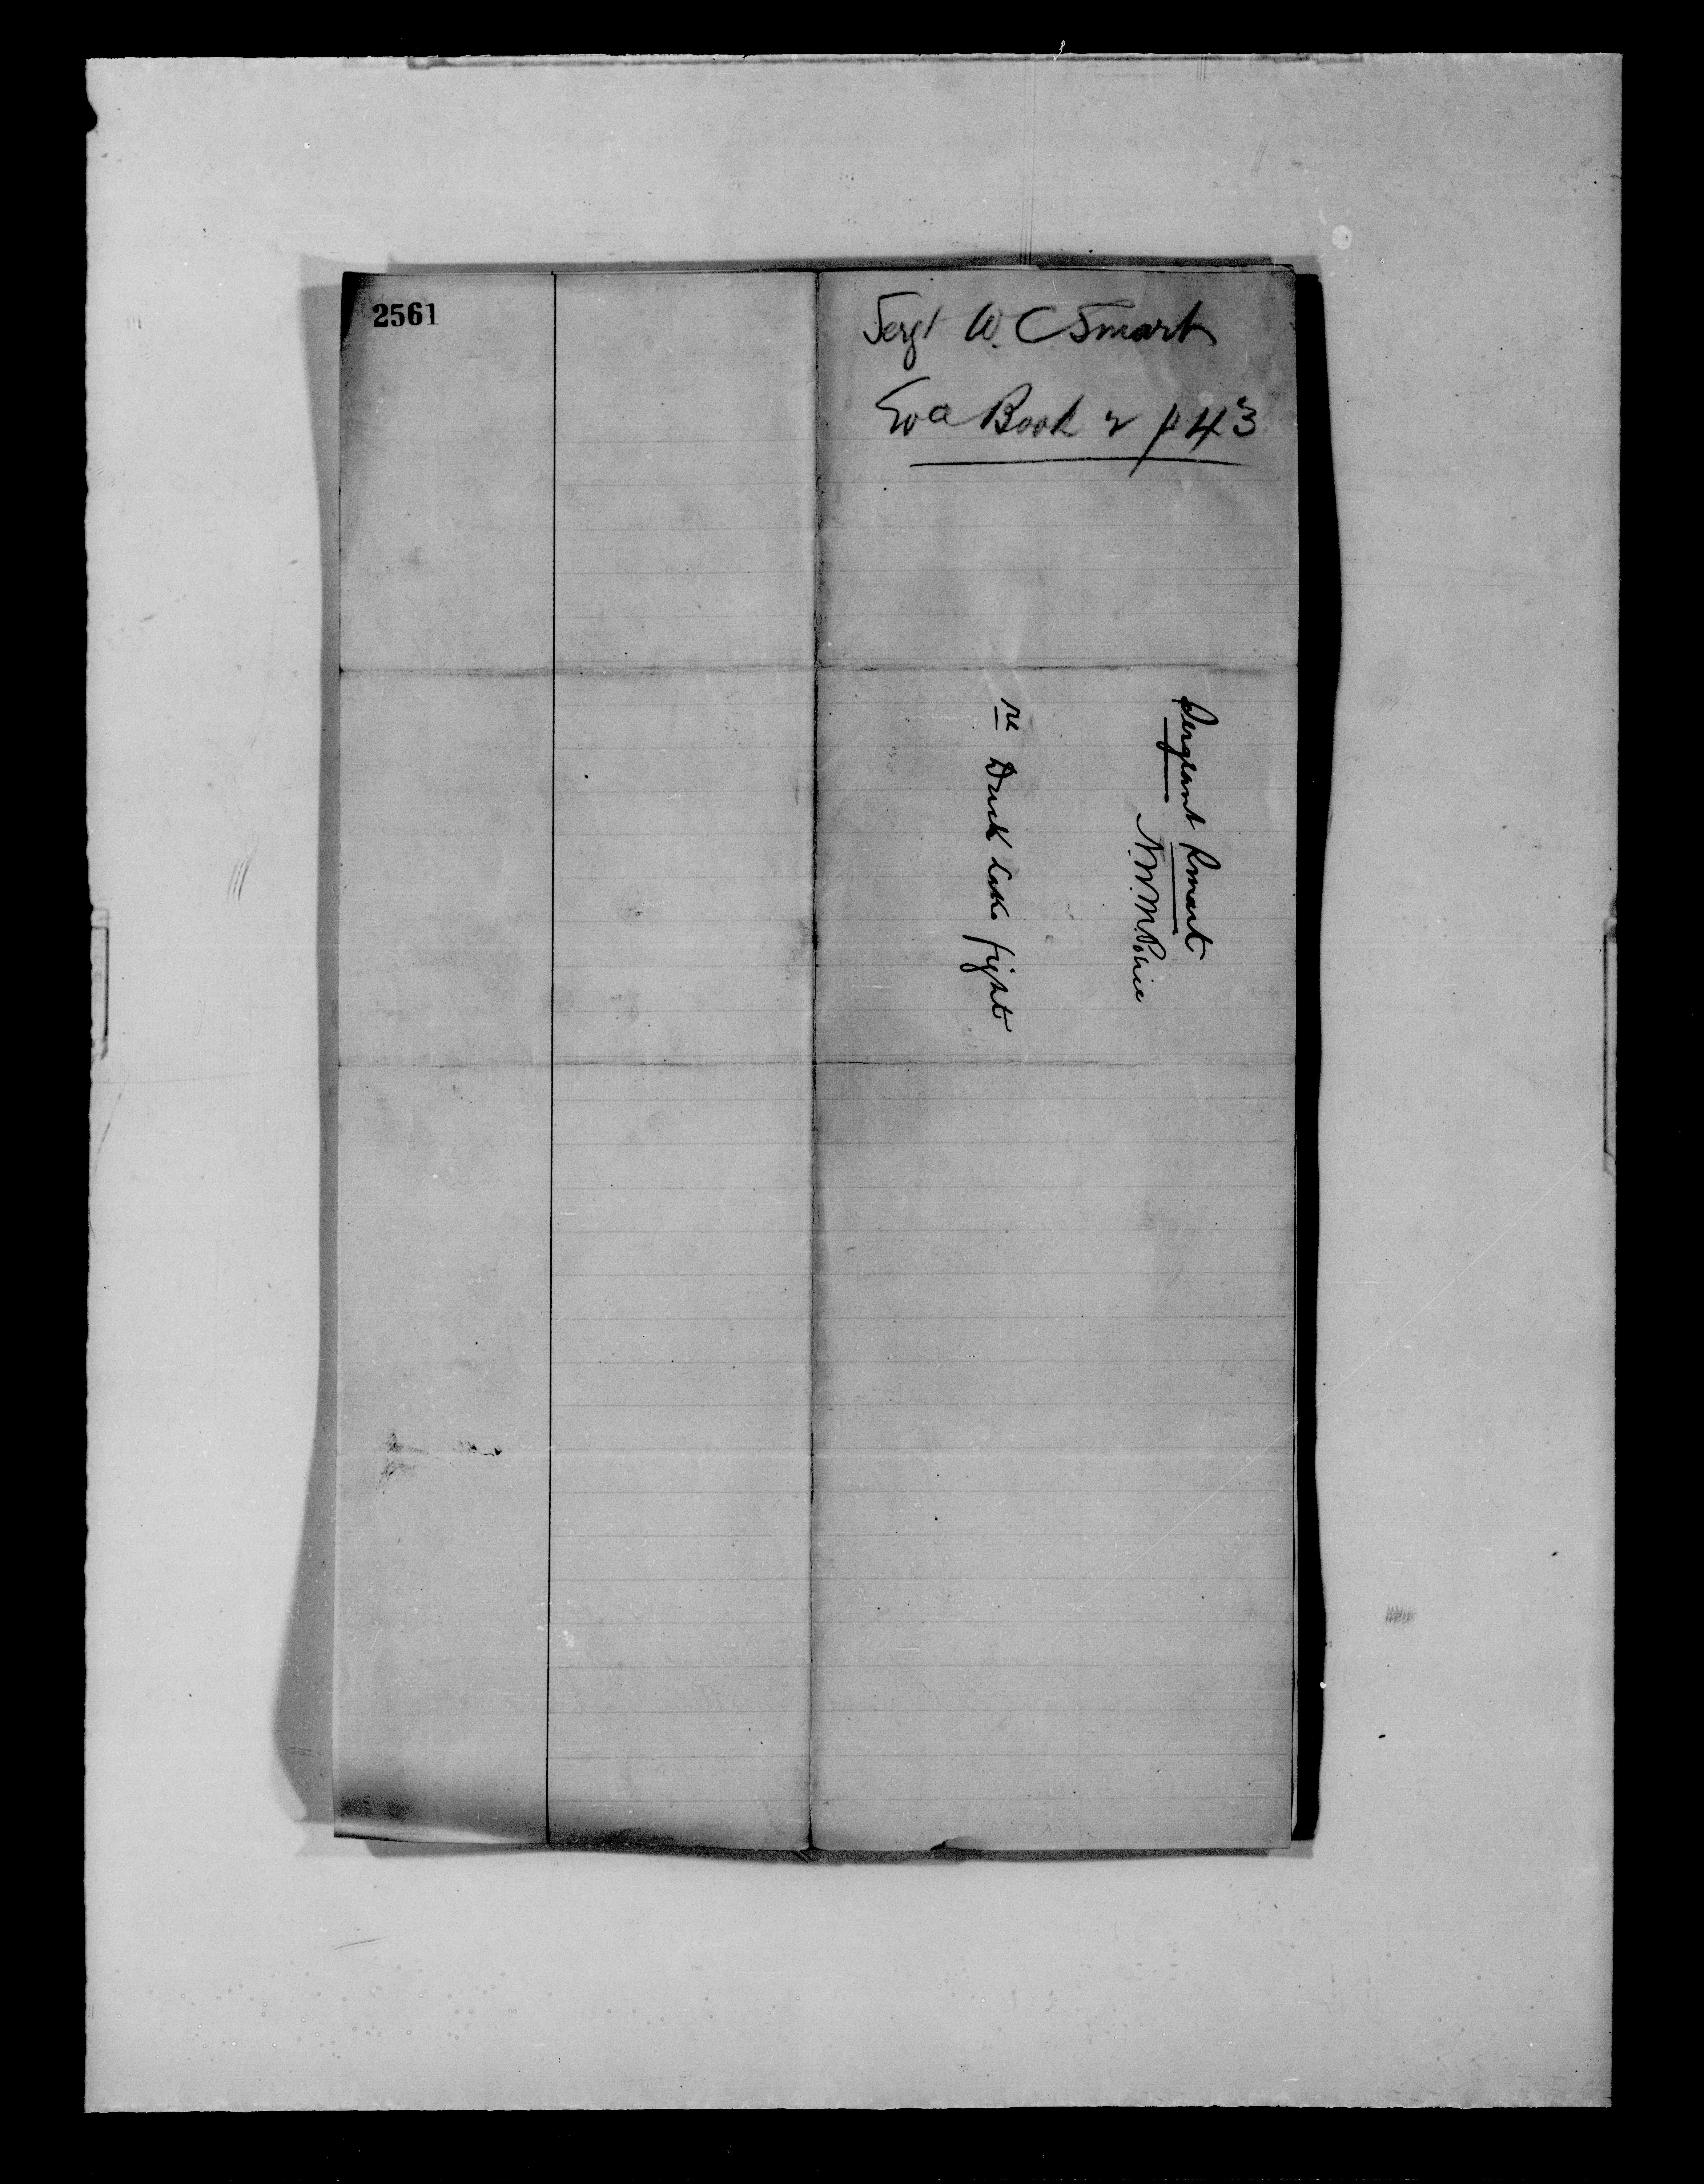 2561
Sergt W. C Smart
Eva Book 2 p 43
Sergeant Smart
N.W.M. Police
re Duck Lake fight